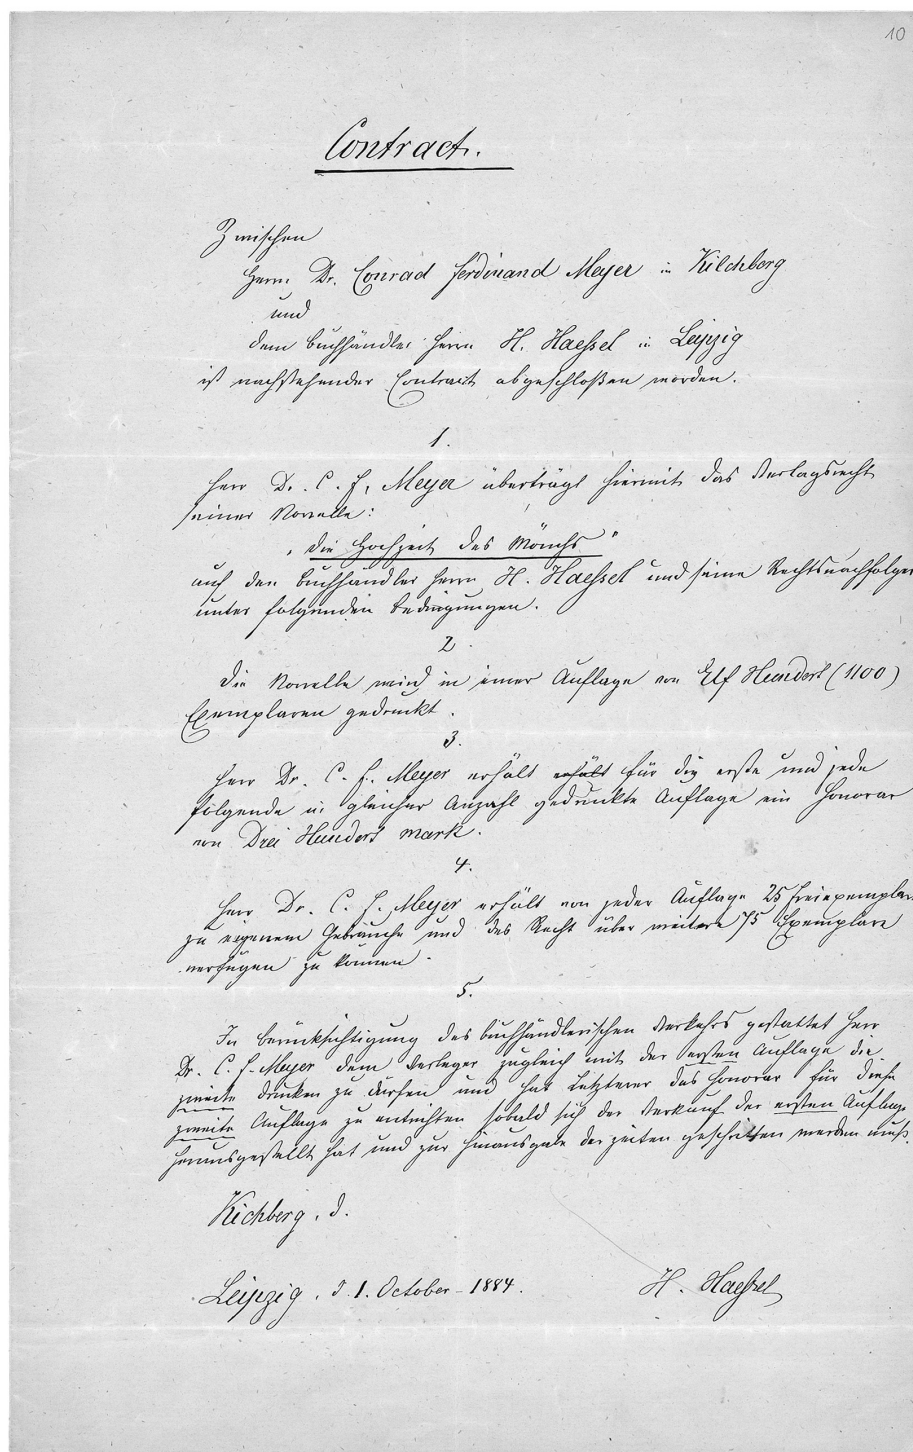 10
Contract.
Zwischen
Herrn Dr. Conrad Ferdinand Meyer in Kilchberg
und
dem Buchhändler Herrn H. Haessel in Leipzig
ist nachstehender Contract abgeschloßen worden.
1.
Herr Dr. C. F. Meyer überträgt hiermit das Verlagsrecht
seiner Novelle:
„Die Hochzeit des Mönchs"
auf den Buchhändler Herrn H. Haessel und seine Rechtsnachfolger
unter folgenden Bedingungen.
2.
Die Novelle wird in einer Auflage von Elf Hundert (1100)
Exemplaren gedruckt.
3.
Herr Dr. C. F. Meyer erhält erhält für die erste und jede
folgende in gleicher Anzahl gedruckte Auflage ein Honorar
von Drei Hundert Mark.
4.
Herr Dr. C. F. Meyer erhält von jeder Auflage 25 Freiexemplare
zu eigenem Gebrauche und das Recht über weitere 75 Exemplare
verfügen zu können.
5.
In Berücksichtigung des buchhändlerischen Verkehrs gestattet Herr
Dr. C. F. Meyer dem Verleger zugleich mit der ersten Auflage die
zweite drucken zu dürfen und hat Letzterer das Honorar für diese
zweite Auflage zu entrichten sobald sich der Verkauf der ersten Auflage
herausgestellt hat und zur Hinausgabe der zweiten geschritten werden muß.
Kichberg, d.
Leipzig, d. 1. October 1884.
H. Haessel